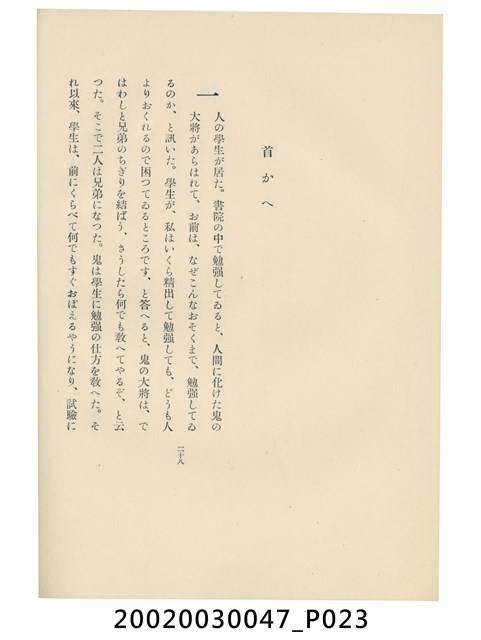 首かへ
一人の學生が居た。書院の中で勉强してゐると、人間に化けた鬼の
大將があらはれて、お前は、なぜこんなおそくまで、勉强してゐ
るのか、と訊いた。學生が、私はいくら精出して勉强しても、どうも人
よりおくれるので困つてゐるところです、と答へると、鬼の大將は、で
はわしと兄弟のちぎりを結ばう、さうしたら何でも敎へてやるぞ、と云
つた。そこで二人は兄弟になつた。鬼は學生に勉强の仕方を敎へた。そ
れ以來、學生は、前にくらべて何でもすぐおぼえるやうになり、試驗に
二十八
20020030047_P023